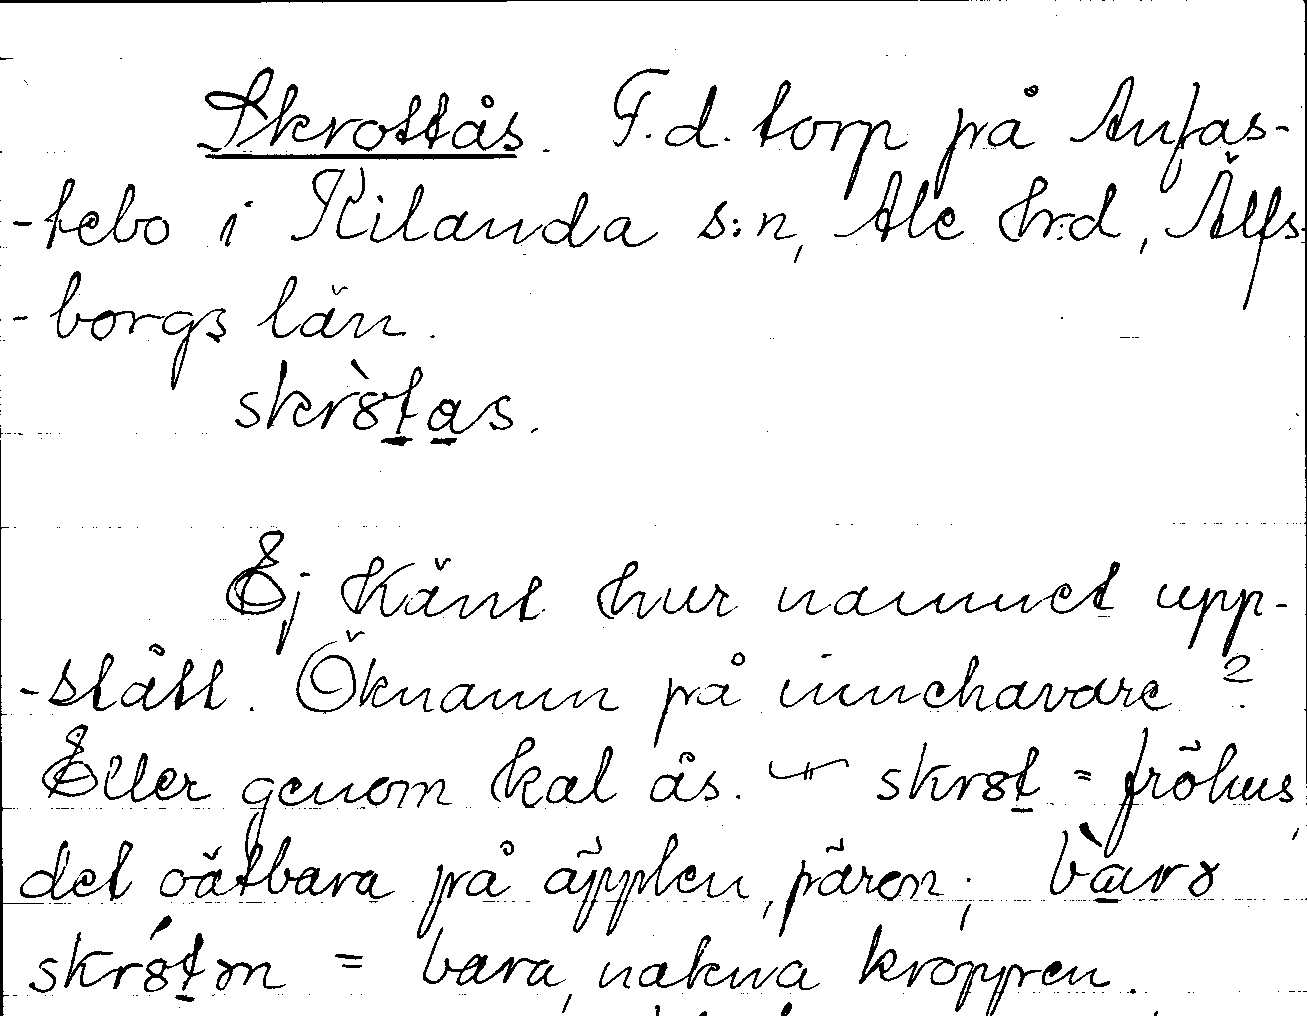 Skrottås. F.d. torp på Anfas-
-tebo i Kilanda s:n, Ale hrd, Älfs-
-borgs län.
skr8̀tas.
Ej känt hur namnet upp-
-stått. Öknamn på innehavare?
Eller genom kal ås. skr8t = fröhus,
det oätbara på äpplen, päron; bàrə
skr8́tən = bara, nakna kroppen.